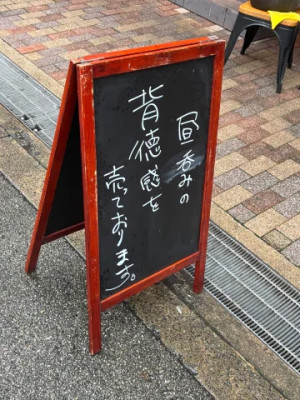 昼呑みの
背徳感を
売っております。